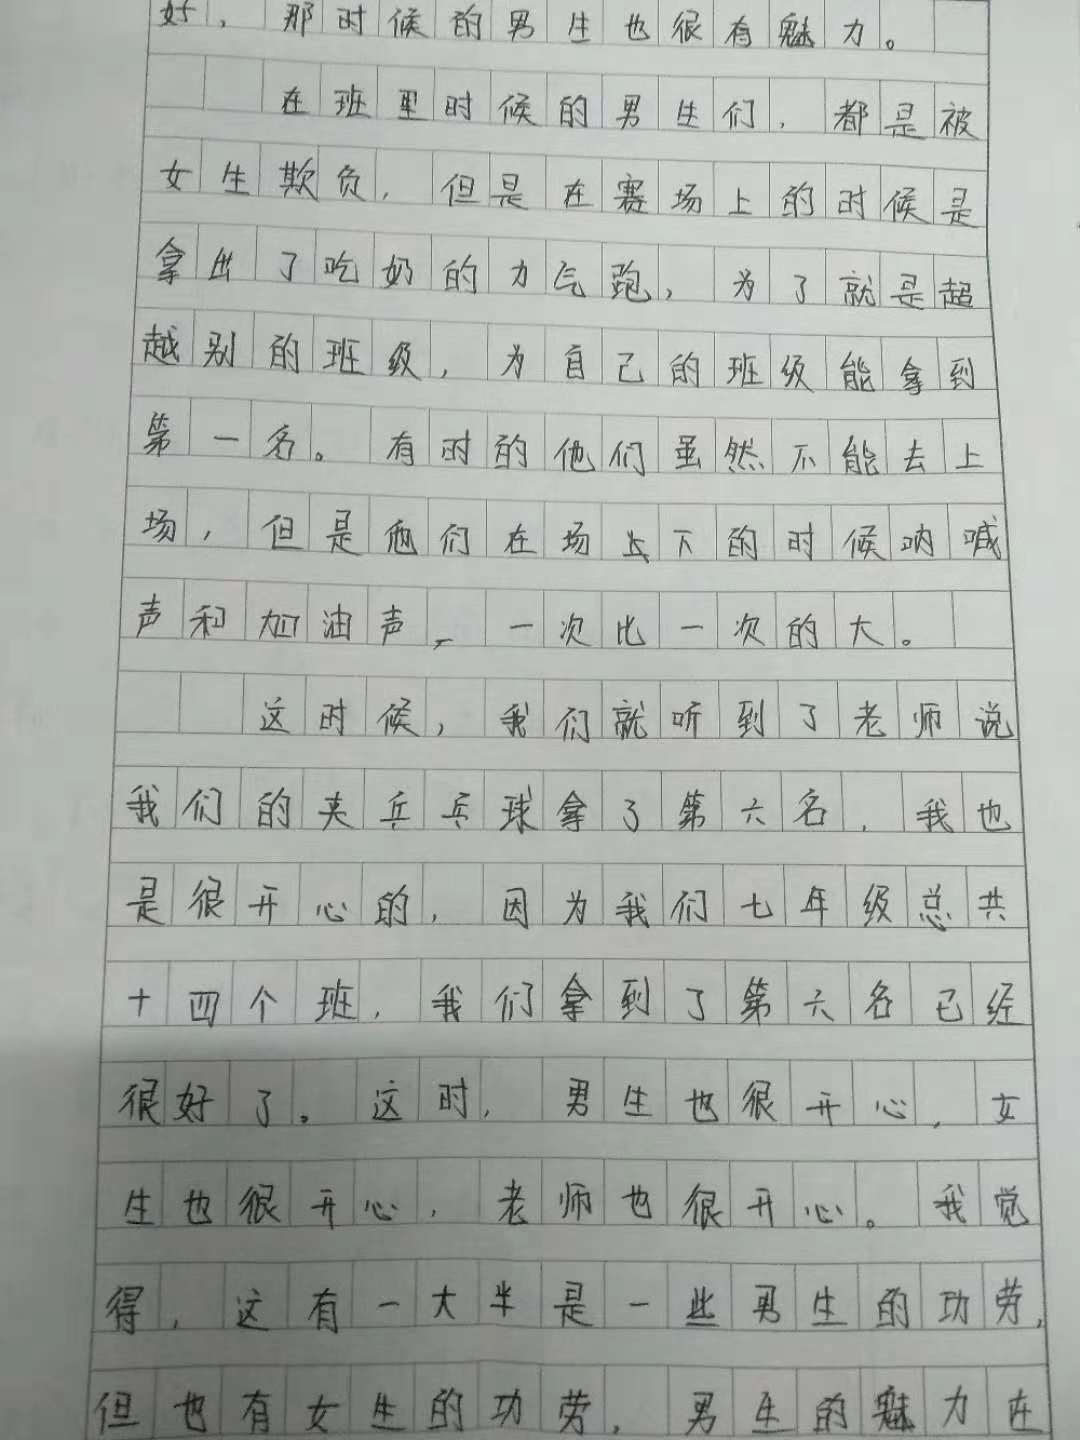 好，那时候的男生也很有魅力。
在班里时候的男生们，都是被
女生欺负，但是在赛场上的时候是
拿出了吃奶的力气跑，为了就是超
越别的班级，为自己的班级能拿到
第一名。有时的他们虽然不能去上
场，但是他们在场上下的时候呐喊
声和加油声，一次比一次的大。
这时候，我们就听到了老师说
我们的夹乒乓球拿了第六名，我也
是很开心的，因为我们七年级总共
十四个班，我们拿到了第六名已经
很好了。这时，男生也很开心，女
生也很开心，老师也很开心。我觉
得，这有一大半是一些男生的功劳，
但也有女生的功劳，男生的魅力在